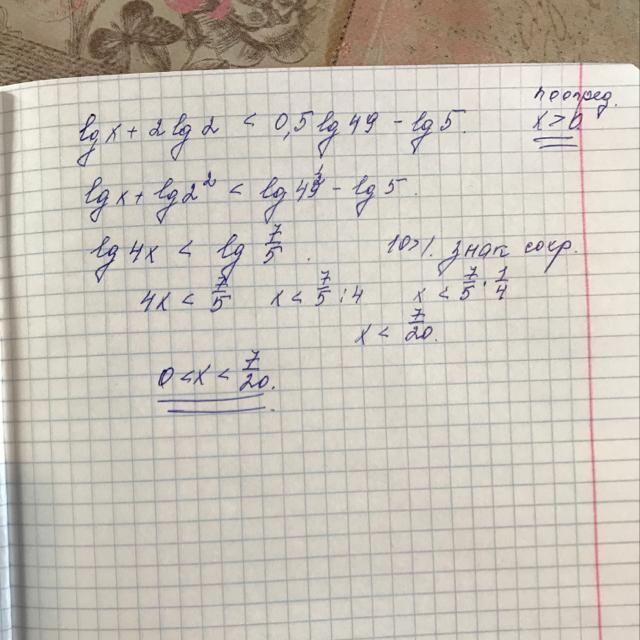 по опред.
lg x + 2 lg 2 < 0,5 lg 49 - lg 5. x > 0
lg x + lg 2² < lg 49^½ - lg 5.
lg 4x < lg 7/5. 10>1. знак сохр.
4x < 7/5 x < 7/5 : 4 x < 7/5 · 1/4
x < 7/20.
0 < x < 7/20.